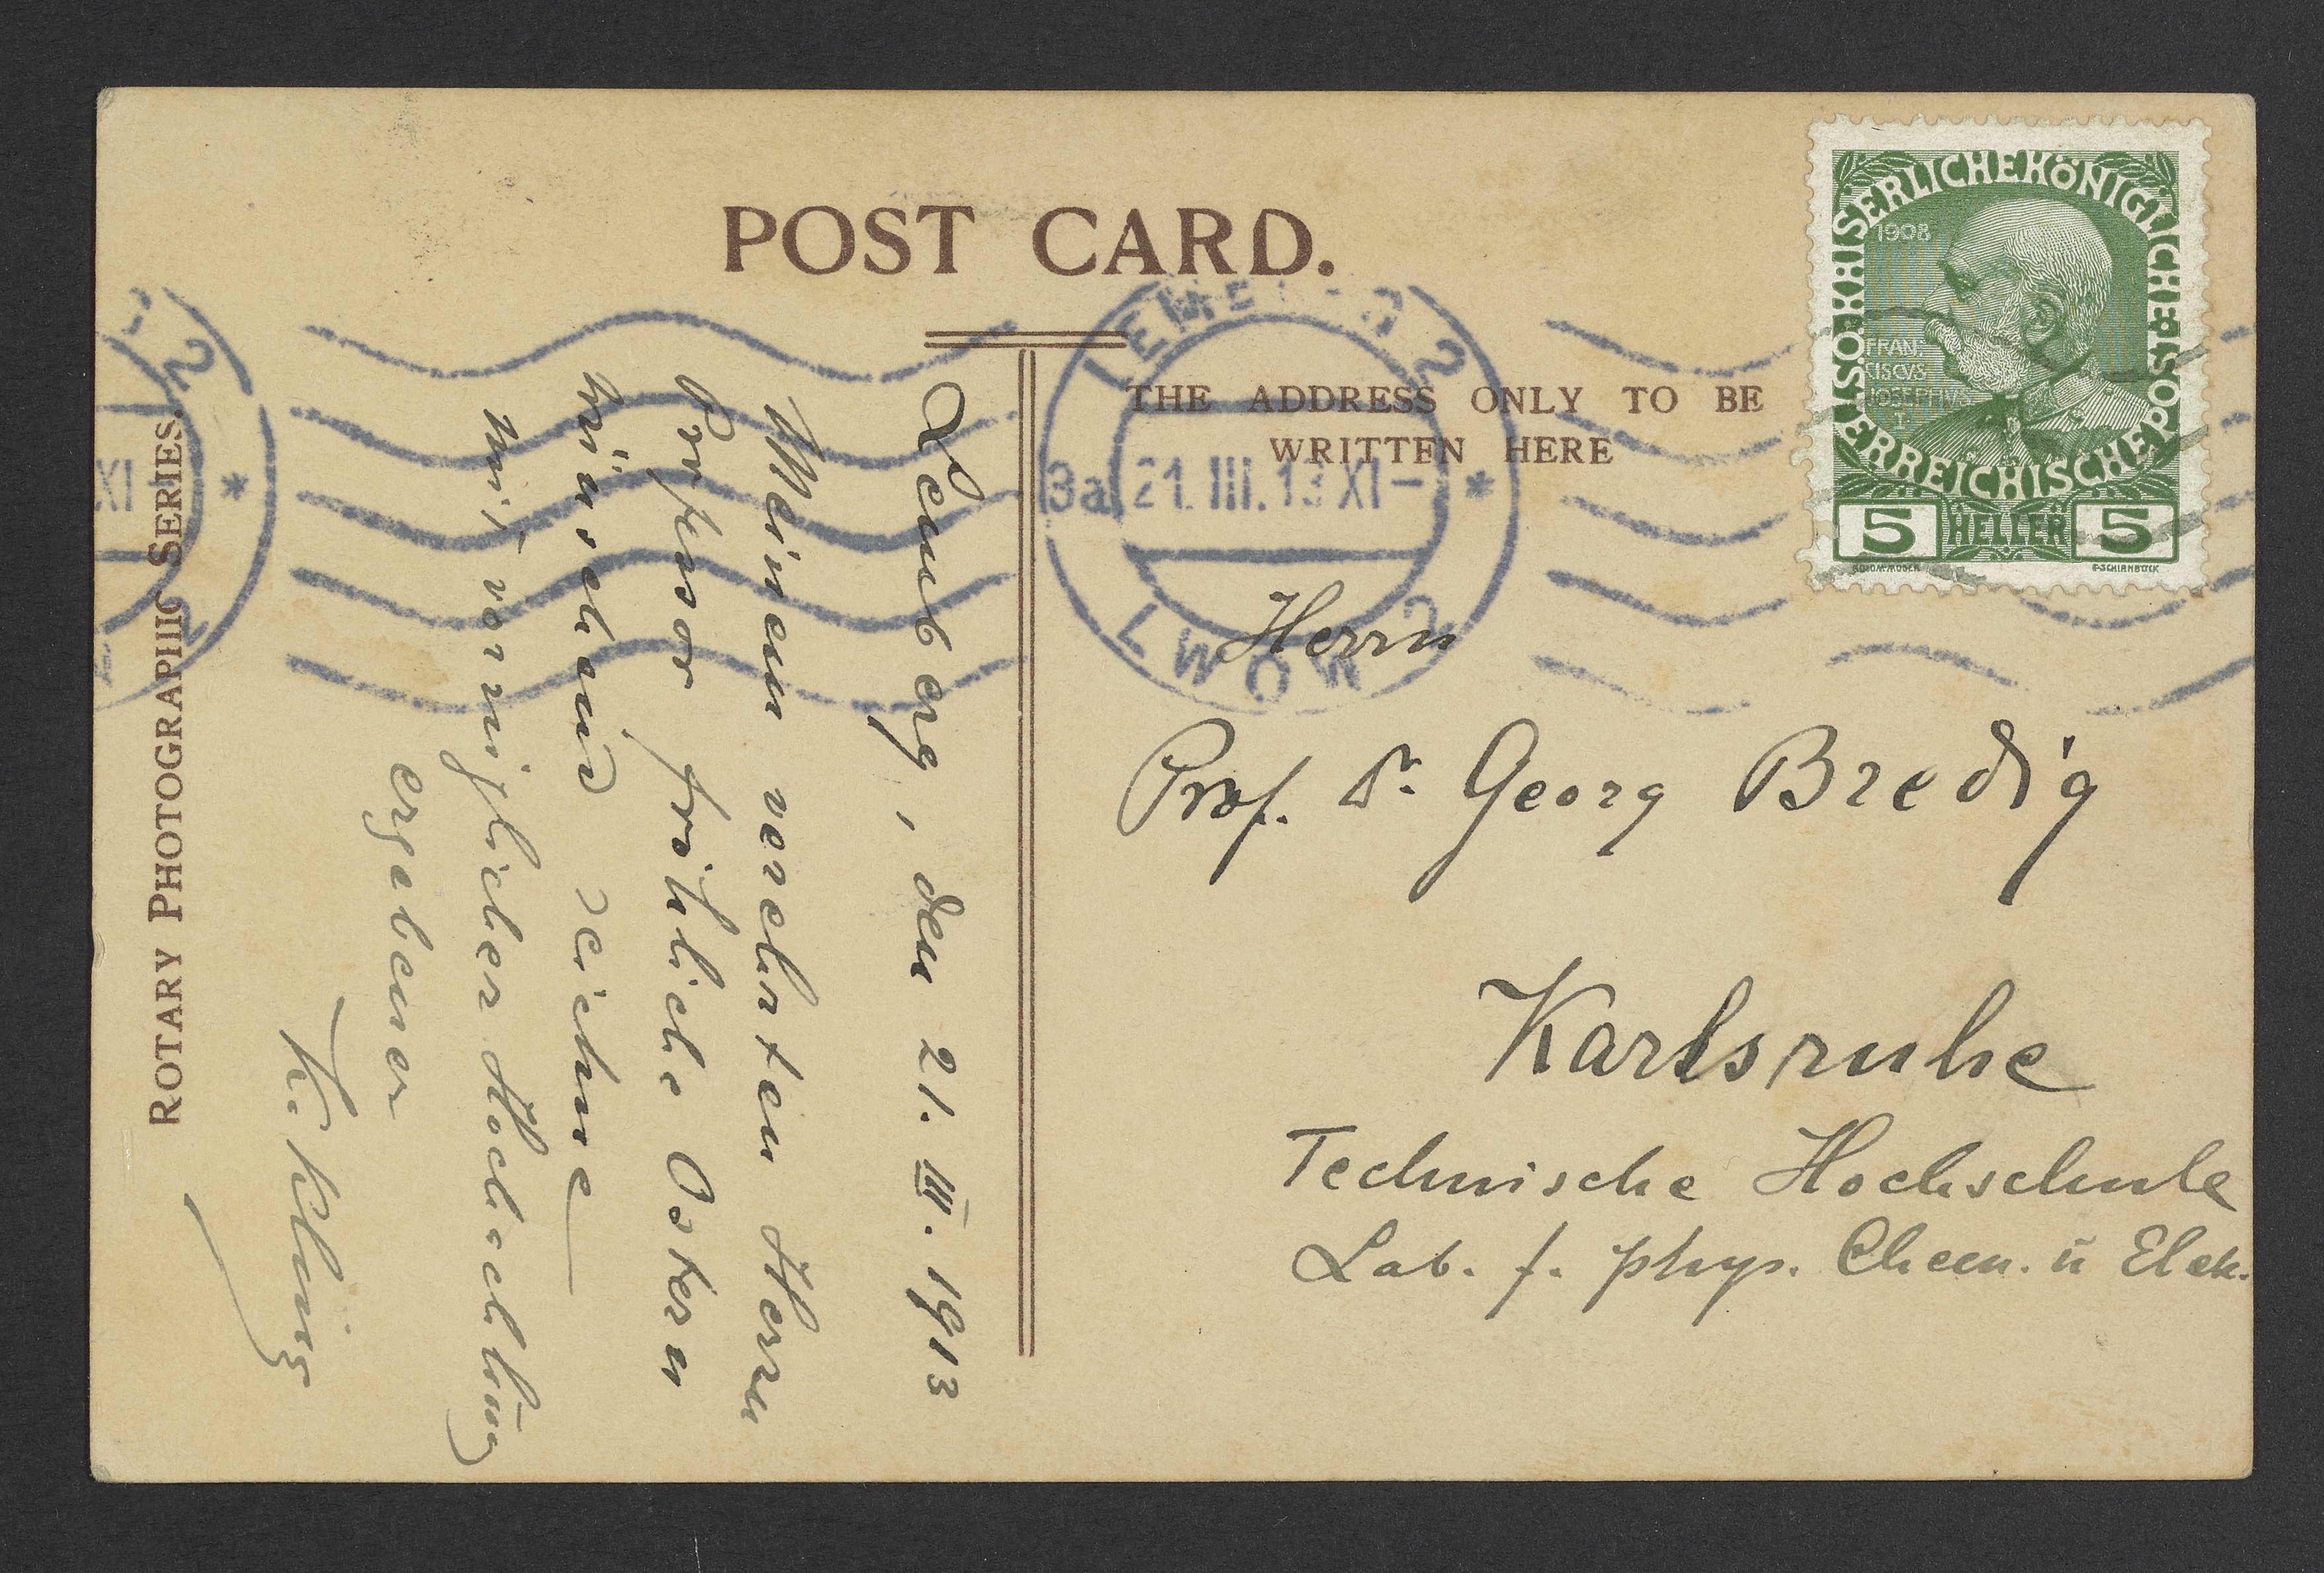 POST CARD.
THE ADDRESS ONLY TO BE
WRITTEN HERE
ROTARY PHOTOGRAPHIC SERIES.
KAISERLICHE KÖNIGLICHE ÖSTERREICHISCHE POST
1908
FRAN:
CISCVS
JOSEPHVS
I
5 HELLER 5
KOLOM.MOSER F.SCHIRNBÖCK
LEMBERG 2
3a 21.III.13 XI- *
LWÓW 2
2
XI *
Lemberg, den 21. III. 1913
Meinem verehrten Herrn
Professor fröhliche Ostern
wünschend zeichne
mit vorzüglicher Hochachtung
ergebener
K. Kling
Herrn
Prof. Dr Georg Bredig
Karlsruhe
Technische Hochschule
Lab. f. phys. Chem. u Elek.